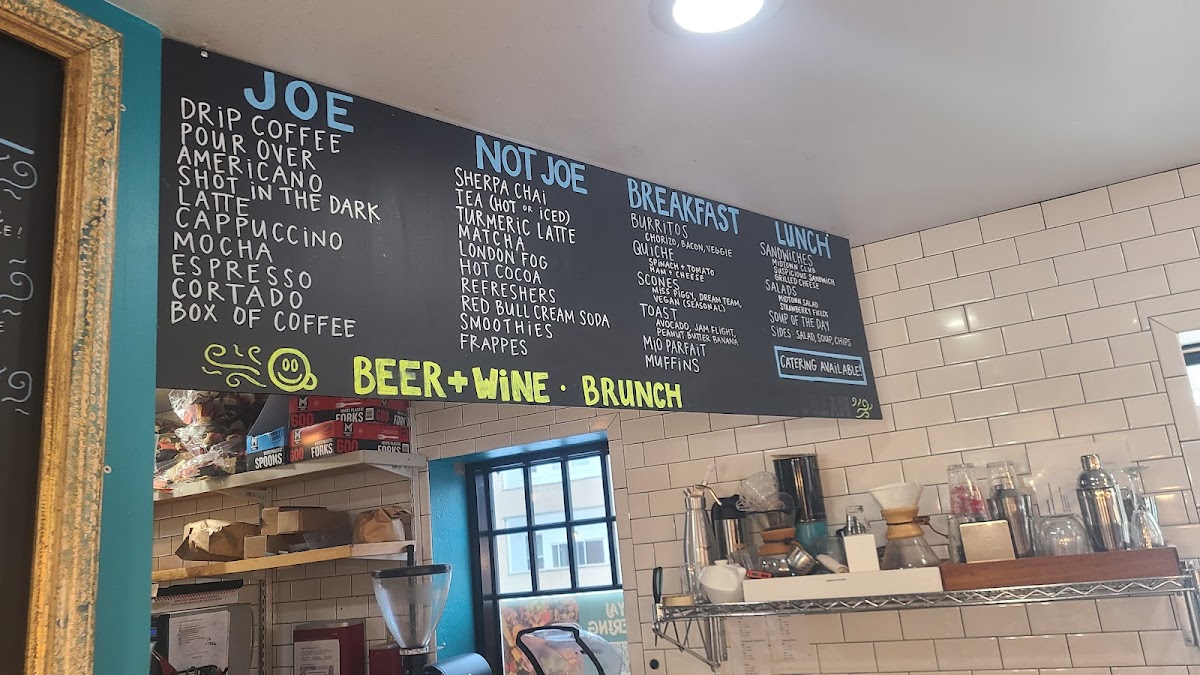 JOE
DRiP COFFEE
POUR OVER
AMERiCANO
SHOT IN THE DARK
LATTE
CAPPUCCiNO
MOCHA
ESPRESSO
CORTADO
BOX OF COFFEE
NOT JOE
SHERPA CHAi
TEA (HOT OR iCED)
TURMERIC LATTE
MATCHA
LONDON FOG
HOT COCOA
REFRESHERS
RED BULL CREAM SODA
SMOOTHiES
FRAPPES
BREAKFAST
BURRITOS
CHORIZO, BACON, VEGGIE
QUICHE
SPINACH + TOMATO
HAM + CHEESE
SCONES
MISS PIGGY, DREAM TEAM,
VEGAN (SEASONAL)
TOAST
AVOCADO, JAM FLIGHT,
PEANUT BUTTER BANANA
MiO PARFAIT
MUFFINS
LUNCH
SANDWICHES
MIDTOWN CLUB
SUSPICIOUS SANDWICH
GRILLED CHEESE
SALADS
MIDTOWN SALAD
STRAWBERRY FIELDS
SOUP OF THE DAY
SIDES: SALAD, SOUP, CHIPS
CATERING AVAILABLE!
BEER + WiNE · BRUNCH
600
FORKS
600
SPOONS
FORKS
600